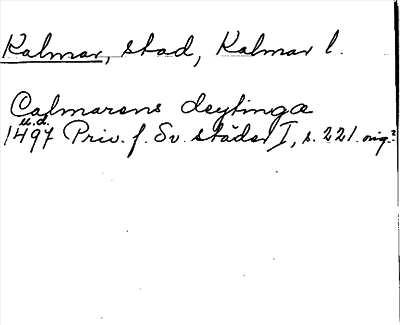 Kalmar, stad, Kalmar l.
Calmarens deytinga
u.d.
1497 Priv. f. Sv. städer I, s. 221. orig.?